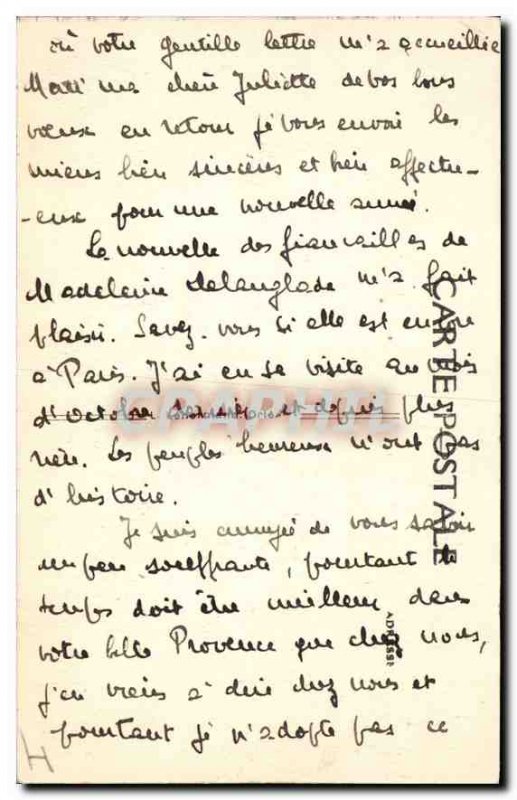 où votre gentille lettre m'a accueillie
Merci ma chère Juliette de vos bons
voeux en retour je vous envoie les
miens bien sincères et bien affectu-
-eux pour une nouvelle année.
La nouvelle des fiançailles de
Madeleine Delanglade m'a fait
plaisir. Savez-vous si elle est encore
à Paris. J'ai eu sa visite au mois
d'octobre et depuis plus
rien. Les peuples heureux n'ont pas
d'histoire.
Je suis ennuyée de vous savoir
un peu souffrante, pourtant le
temps doit être meilleur dans
votre belle Provence que chez nous,
j'en viens à dire chez nous et
pourtant je n'adopte pas ce
CARTE POSTALE
ADRESSE
H